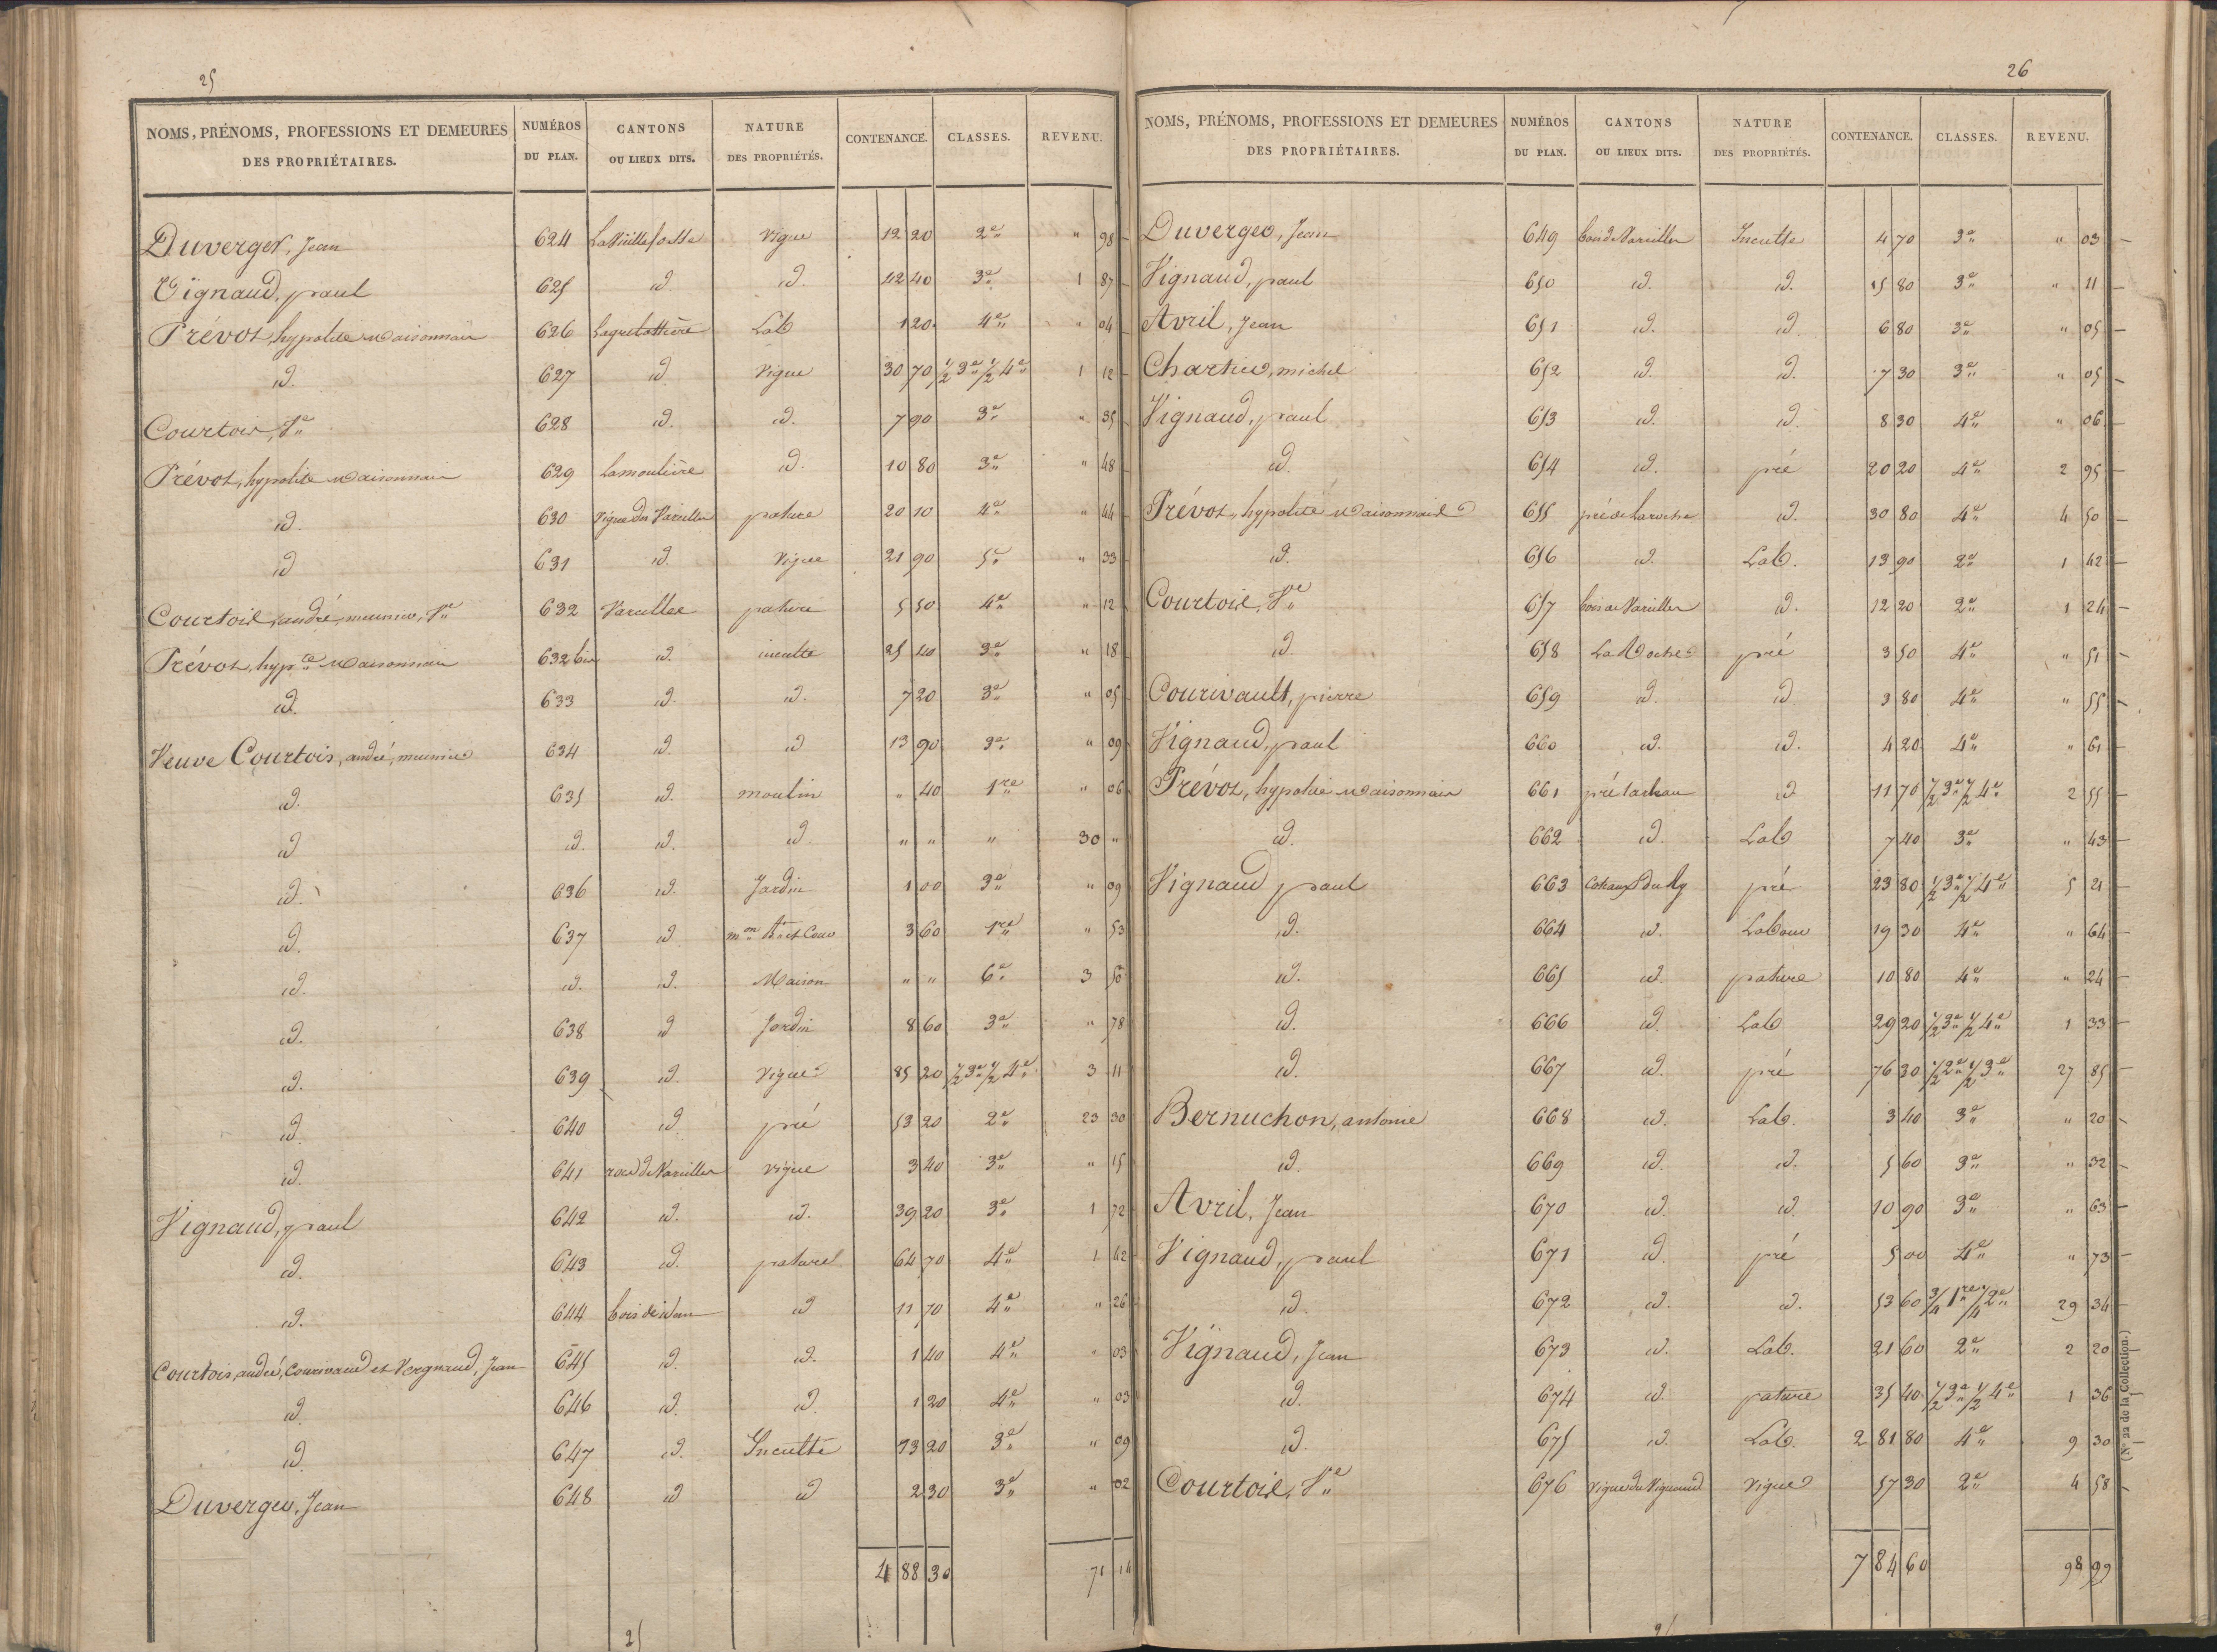 25
NOMS, PRÉNOMS, PROFESSIONS ET DEMEURES DES PROPRIÉTAIRES. NUMÉROS DU PLAN. CANTONS OU LIEUX DITS. NATURE DES PROPRIÉTÉS. CONTENANCE. CLASSES. REVENU.
Duverger, Jean 624 Vigne 12 20 2e " 98
Vignaud, paul 625 id id. 42 40 3e 1 87
Prévot, hypolite 626 Lab 1 20 4e " 04
id. 627 id Vigne 30 70 1/2 3e 1/2 4e 1 12
Courtois, Ve 628 id. id. 7 90 3e " 35
Prévot, hypolite 629 Lamoulière id. 10 80 3e " 48
id. 630 pature 20 10 4e " 44
id 631 id. Vigne 21 90 5e " 33
Courtois, andré, meunier, Ve 632 Vareilles pature 5 50 4e " 12
Prévot, hypte 632 bis id. inculte 25 40 3e " 18
id. 633 id. id. 7 20 3e " 05
Veuve Courtois, andré, meunier 634 id. id 13 90 3e " 09
id. 635 id. moulin " 40 1re " 06
id id. id. id " " " 30 "
id. 636 id. Jardin 1 00 3e " 09
id. 637 id 3 60 1re " 53
id. id. id. Maison " " 6e 3 50
id. 638 id Jardin 8 60 3e " 78
id. 639 id. Vigne 85 20 1/2 3e 1/2 4e 3 11
id. 640 id pré 53 20 2e 23 30
id. 641 vigne 3 40 3e " 15
Vignaud, paul 642 id. id. 39 20 3e 1 72
id. 643 id. pature 64 70 4e 1 42
id. 644 id 11 70 4e " 26
Courtois, andré, Courivaud et Vergnaud, Jean 645 id. id. 1 40 4e " 03
id. 646 id. id. 1 20 4e " 03
id. 647 id. Inculte 13 20 3e " 09
Duverger, Jean 648 id id 2 30 3e " 02
4 88 30 71 14
25
26
NOMS, PRÉNOMS, PROFESSIONS ET DEMEURES DES PROPRIÉTAIRES. NUMÉROS DU PLAN. CANTONS OU LIEUX DITS. NATURE DES PROPRIÉTÉS. CONTENANCE. CLASSES. REVENU.
Duverger, Jean 649 Inculte 4 70 3e " 03
Vignaud, paul 650 id. id. 15 80 3e " 11
Avril, Jean 651 id. id. 6 80 3e " 05
Chartier, michel 652 id. id. 7 30 3e " 05
Vignaud, paul 653 id. id. 8 30 4e " 06
id. 654 id. pré 20 20 4e 2 95
Prévot, hypolite 655 pré de Laroche id. 30 80 4e 4 50
id. 656 id. Lab. 13 90 2e 1 42
Courtois, Ve 657 id. 12 20 2e 1 24
id. 658 La Roche pré 3 50 4e " 51
Courivault, pierre 659 id. id 3 80 4e " 55
Vignaud, paul 660 id. id. 4 20 4e " 61
Prévot, hypolite 661 id. 11 70 1/2 3e 1/2 4e 2 55
id. 662 id. Lab 7 40 3e " 43
Vignaud paul 663 pré 23 80 1/2 3e 1/2 4e 5 21
id. 664 id. Labour 19 30 4e " 64
id. 665 id. pature 10 80 4e " 24
id. 666 id. Lab 29 20 1/2 3e 1/2 4e 1 33
id. 667 id. pré 76 30 1/2 2e 1/2 3e 27 85
Bernuchon, antoine 668 id. Lab. 3 40 3e " 20
id. 669 id. id. 5 60 3e " 32
Avril, Jean 670 id. id. 10 90 3e " 63
Vignaud, paul 671 id. pré 5 00 4e " 73
id. 672 id. id. 53 60 3/4 1re 1/4 2e 29 34
Vignaud, Jean 673 id. Lab. 21 60 2e 2 20
id. 674 id. pature 35 40 1/2 3e 1/2 4e 1 36
id. 675 id. Lab. 2 81 80 4e 9 30
Courtois, Ve 676 Vigne du Vignaud Vigne 57 30 2e 4 58
7 84 60 98 99
(N° 22 de la Collection.)